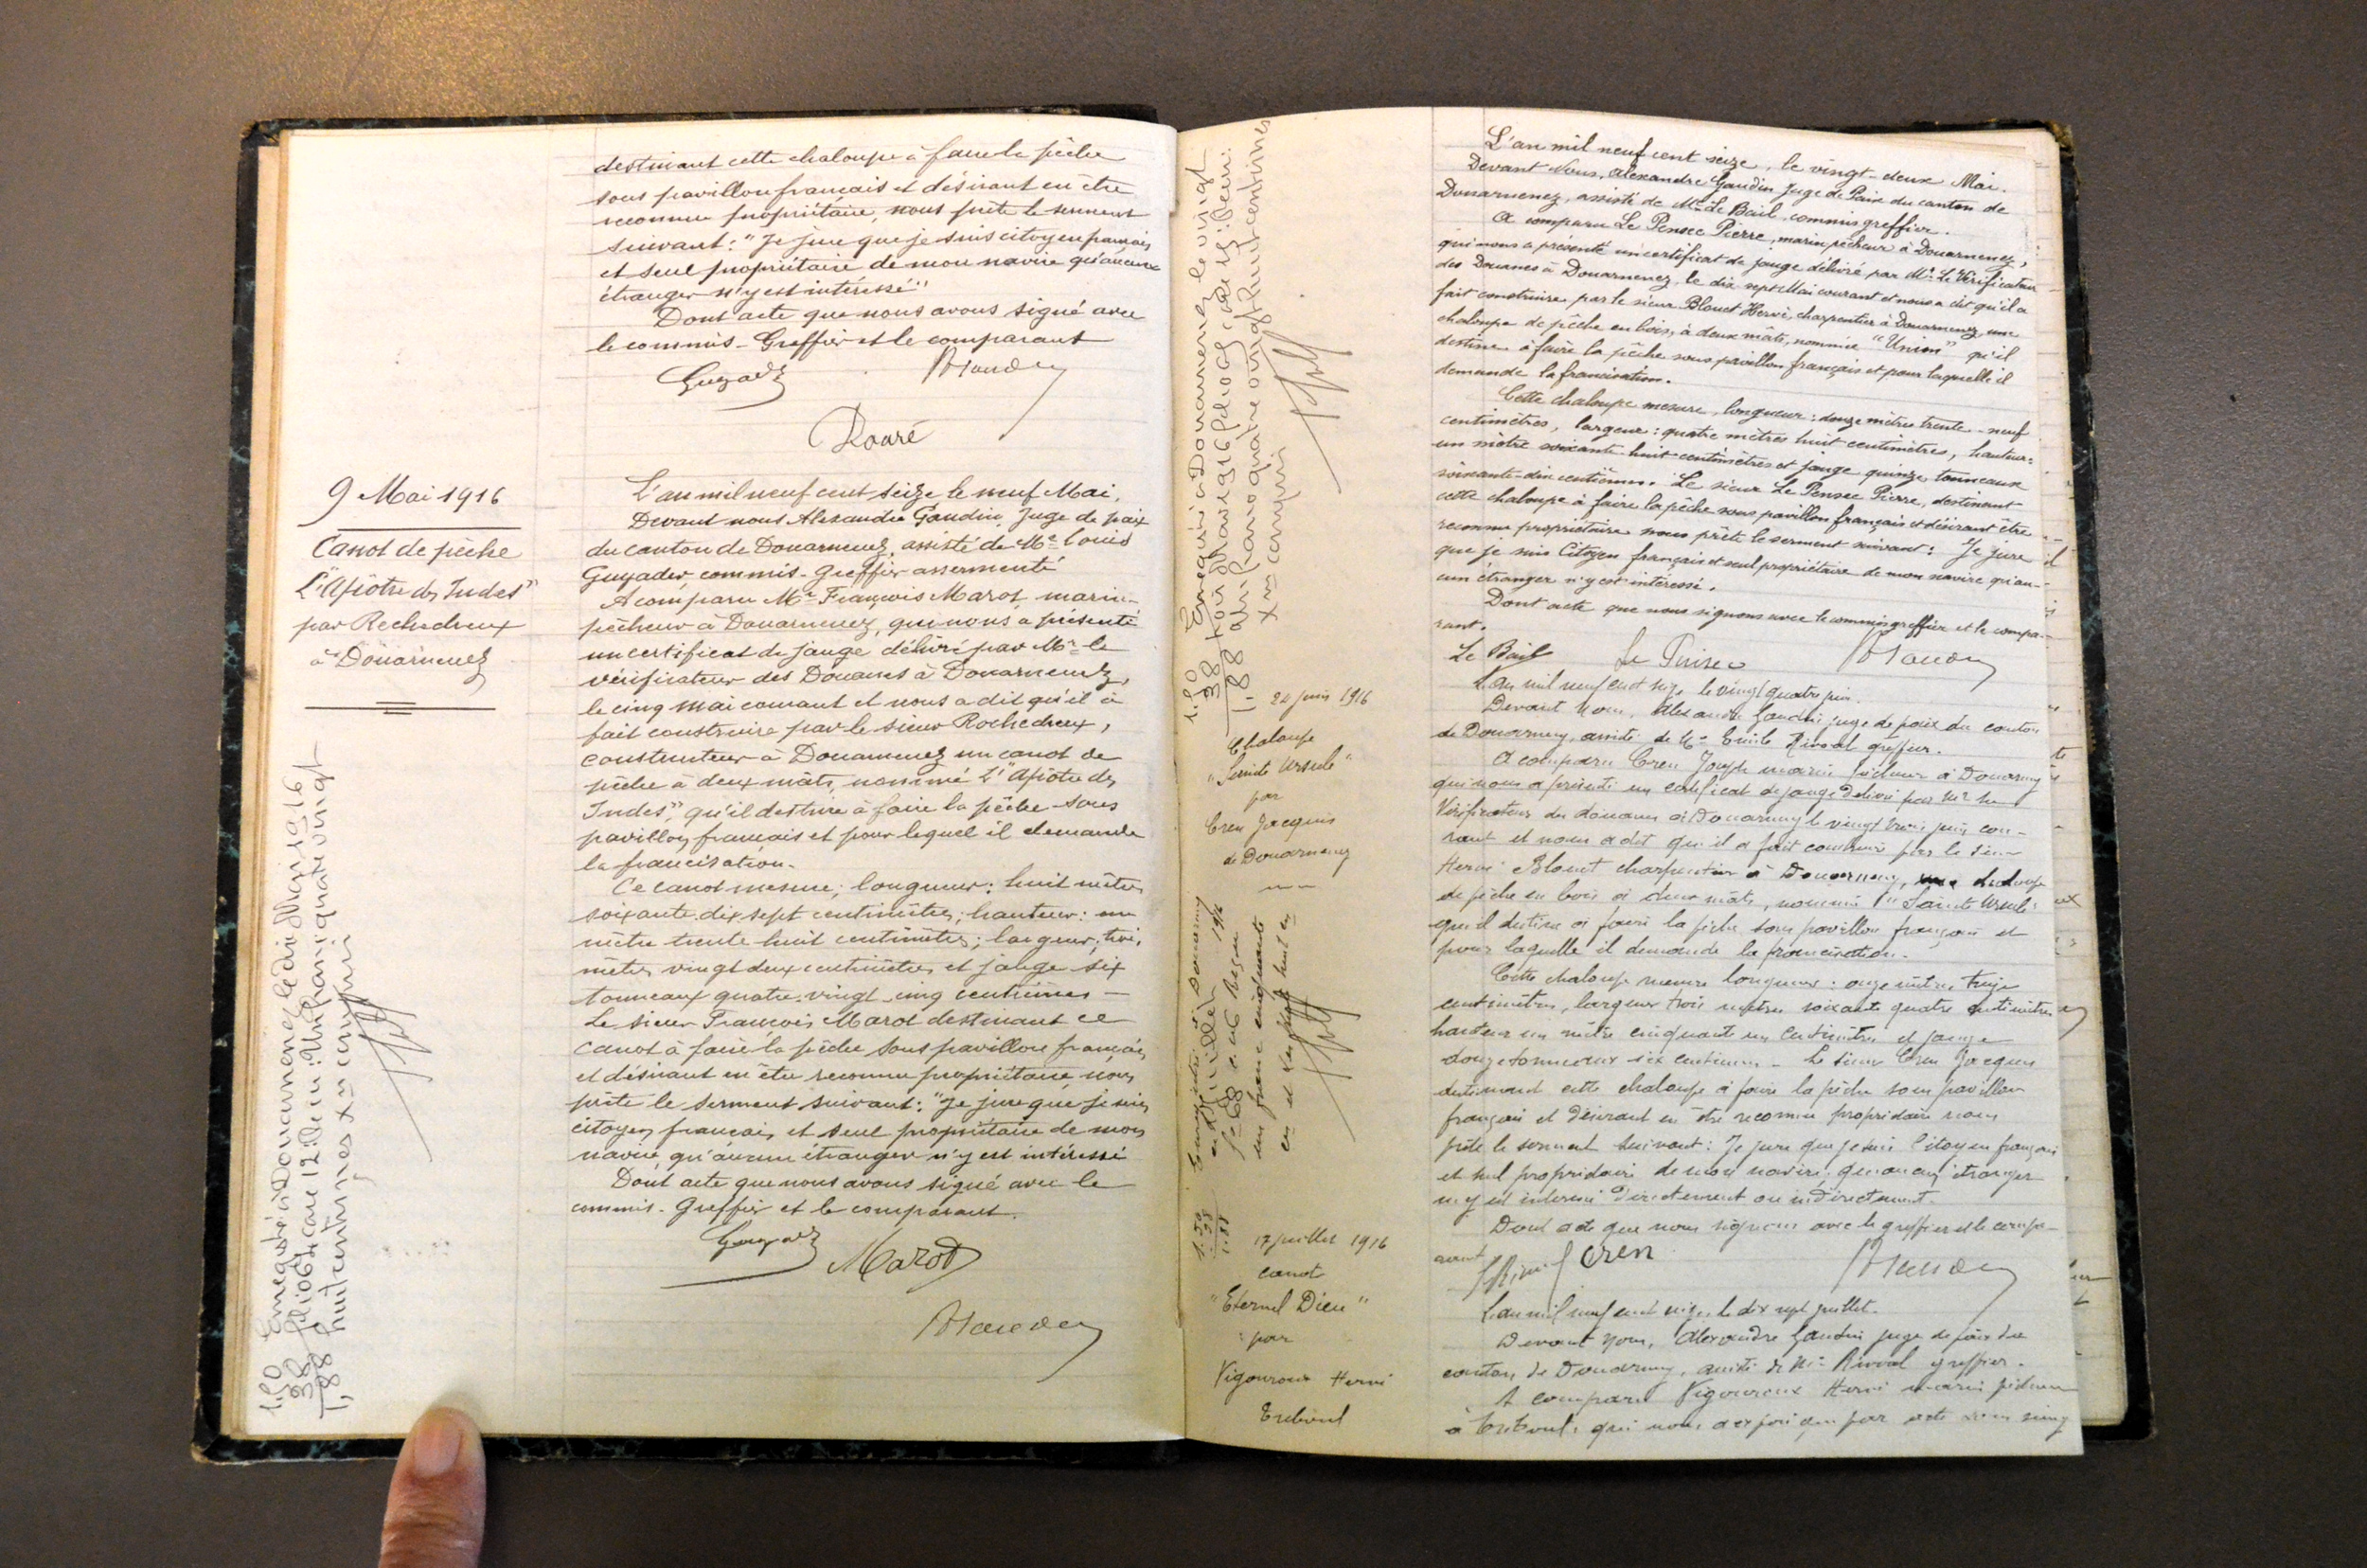 destinant cette chaloupe à faire la pêche
sous pavillon français et désirant en être
reconnu propriétaire, nous prête le serment
suivant : "Je jure que je suis citoyen français
et seul propriétaire de mon navire qu'aucun
étranger n'y est intéressé"
Dont acte que nous avons signé avec
le commis-Greffier et le comparant
Guyader
Douré
9 Mai 1916
Canot de pêche
L'"Apôtre des Indes"
par Rochedreux
à Douarnenez
L'an mil neuf cent seize le neuf Mai.
Devant nous Alexandre Gaudin, Juge de paix
du canton de Douarnenez, assisté de Me Louis
Guyader, commis-Greffier assermenté
A comparu Mr François Marot, marin-
pêcheur à Douarnenez, qui nous a présenté
un certificat de jauge délivré par Mr le
vérificateur des Douanes à Douarnenez,
le cinq mai courant et nous a dit qu'il a
fait construire par le sieur Rochedreux,
constructeur à Douarnenez un canot de
pêche à deux mâts, nommé L'"Apôtre des
Indes", qu'il destine à faire la pêche sous
pavillon français et pour lequel il demande
la francisation.
Ce canot mesure ; longueur : huit mètres
soixante-dix sept centimètres ; hauteur : un
mètre trente huit centimètres ; largeur ; trois
mètres vingt deux centimètres et jauge six
tonneaux quatre-vingt-cinq centièmes —
Le sieur François Marot destinant ce
canot à faire la pêche sous pavillon français
et désirant en être reconnu propriétaire, nous
prête le serment suivant : "Je jure que je suis
citoyen français et seul propriétaire de mon
navire, qu'aucun étranger n'y est intéressé
Dont acte que nous avons signé avec le
commis-Greffier et le comparant.
Guyader
Marot
1,50
38
1,88
Enregistré à Douarnenez le dix Mai 1916
folio 62 case 12. Reçu : Un franc quatre vingt
huit centimes xmes compris
L'an mil neuf cent seize, le vingt-deux Mai.
Devant Nous, Alexandre Gaudin Juge de Paix du canton de
Douarnenez, assisté de Me Le Bail, commis greffier.
A comparu Le Pensec Pierre, marin pêcheur à Douarnenez,
qui nous a présenté un certificat de jauge délivré par Mr Le Vérificateur
des Douanes à Douarnenez, le dix-sept Mai courant et nous a dit qu'il a
fait construire par le sieur Blouet Hervé, charpentier à Douarnenez, une
chaloupe de pêche en bois, à deux mâts, nommée "Union" qu'il
destine à faire la pêche sous pavillon français et pour laquelle il
demande la francisation.
Cette chaloupe mesure, longueur : douze mètres trente-neuf
centimètres, largeur : quatre mètres huit centimètres, hauteur :
un mètre soixante-huit centimètres et jauge quinze tonneaux
soixante-dix centièmes. Le sieur Le Pensec Pierre, destinant
cette chaloupe à faire la pêche sous pavillon français et désirant être
reconnu propriétaire nous prête le serment suivant : "Je jure
que je suis Citoyen français et seul propriétaire de mon navire qu'au-
cun étranger n'y est intéressé.
Dont acte que nous signons avec le commis greffier et le compa-
rant.
Le Bail Le Pensec
1.50
38
1.88
Enregistré à Douarnenez le vingt
trois Mai 1916 folio case Reçu :
un franc quatre vingt huit centimes
xmes compris
20 juin 1916
Chaloupe
"Sainte Ursule"
par
Cren Jacques
de Douarnenez
L'an mil neuf cent seize le vingt quatre juin.
Devant Nous, Alexandre Gaudin juge de paix du canton
de Douarnenez, assisté de Me Emile Rivoal greffier.
A comparu Cren Joseph marin pêcheur à Douarnenez
qui nous a présenté un certificat de jauge délivré par Mr le
Vérificateur des douanes à Douarnenez le vingt trois juin cou-
rant et nous a dit qu'il a fait construire par le sieur
Hervé Blouet charpentier à Douarnenez, une chaloupe
de pêche en bois à deux mâts, nommée "Sainte Ursule"
qu'il destine à faire la pêche sous pavillon français et
pour laquelle il demande la francisation.
Cette chaloupe mesure longueur : onze mètres treize
centimètres, largeur trois mètres soixante quatre centimètres
hauteur un mètre cinquante un centimètres et jauge
douze tonneaux six centièmes — Le sieur Cren Jacques
destinant cette chaloupe à faire la pêche sous pavillon
français et désirant en être reconnu propriétaire nous
prête le serment suivant : Je jure que je suis Citoyen français
et seul propriétaire de mon navire, qu'aucun étranger
n'y est intéressé directement ou indirectement.
Dont acte que nous signons avec le greffier et le compa-
rant
Cren
1.50
38
1.88
Enregistré à Douarnenez
juillet 1916
68 Reçu
un franc cinquante
17 juillet 1916
canot
"Eternel Dieu"
par
Vigouroux Hervé
Tréboul
L'an mil neuf cent seize, le dix sept juillet.
Devant Nous, Alexandre Gaudin juge de paix du
canton de Douarnenez, assisté de Me Rivoal greffier.
A comparu Vigouroux Hervé marin pêcheur
à Tréboul, qui nous a exposé que par acte sous seing